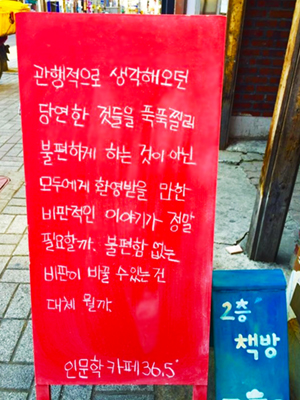 관행적으로 생각해오던
당연한 것들을 푹푹찔러
불편하게 하는 것이 아닌
모두에게 환영받을 만한
비판적인 이야기가 정말
필요할까. 불편함 없는
비판이 바꿀 수 있는 건
대체 뭘까.
인문학 카페 36.5°
2층
책방